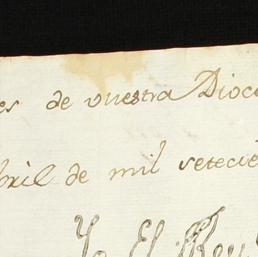 es de vuestra Dioce
bril de mil setecie
Yo El Rey